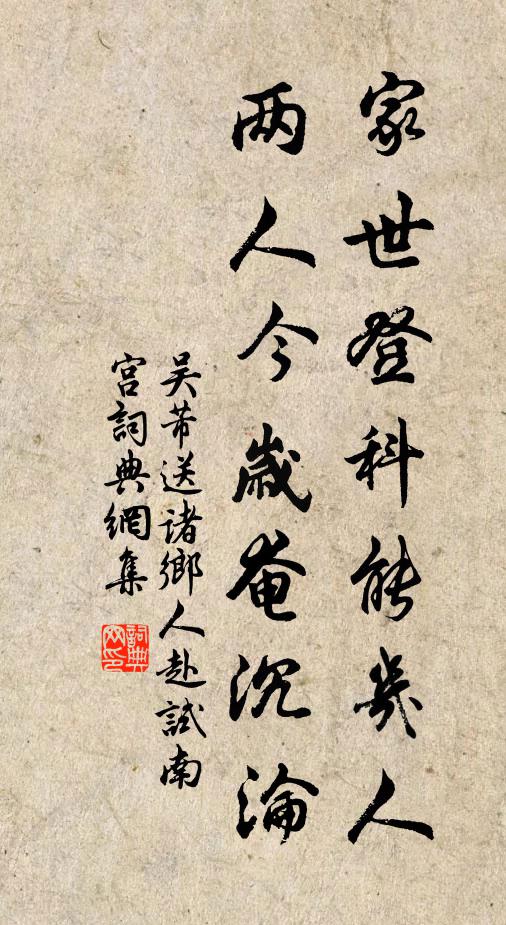 家世登科能幾人
两人今歲奄沉淪
吴芾送诸鄉人赴試南
宫詞典網集
詞典
网印